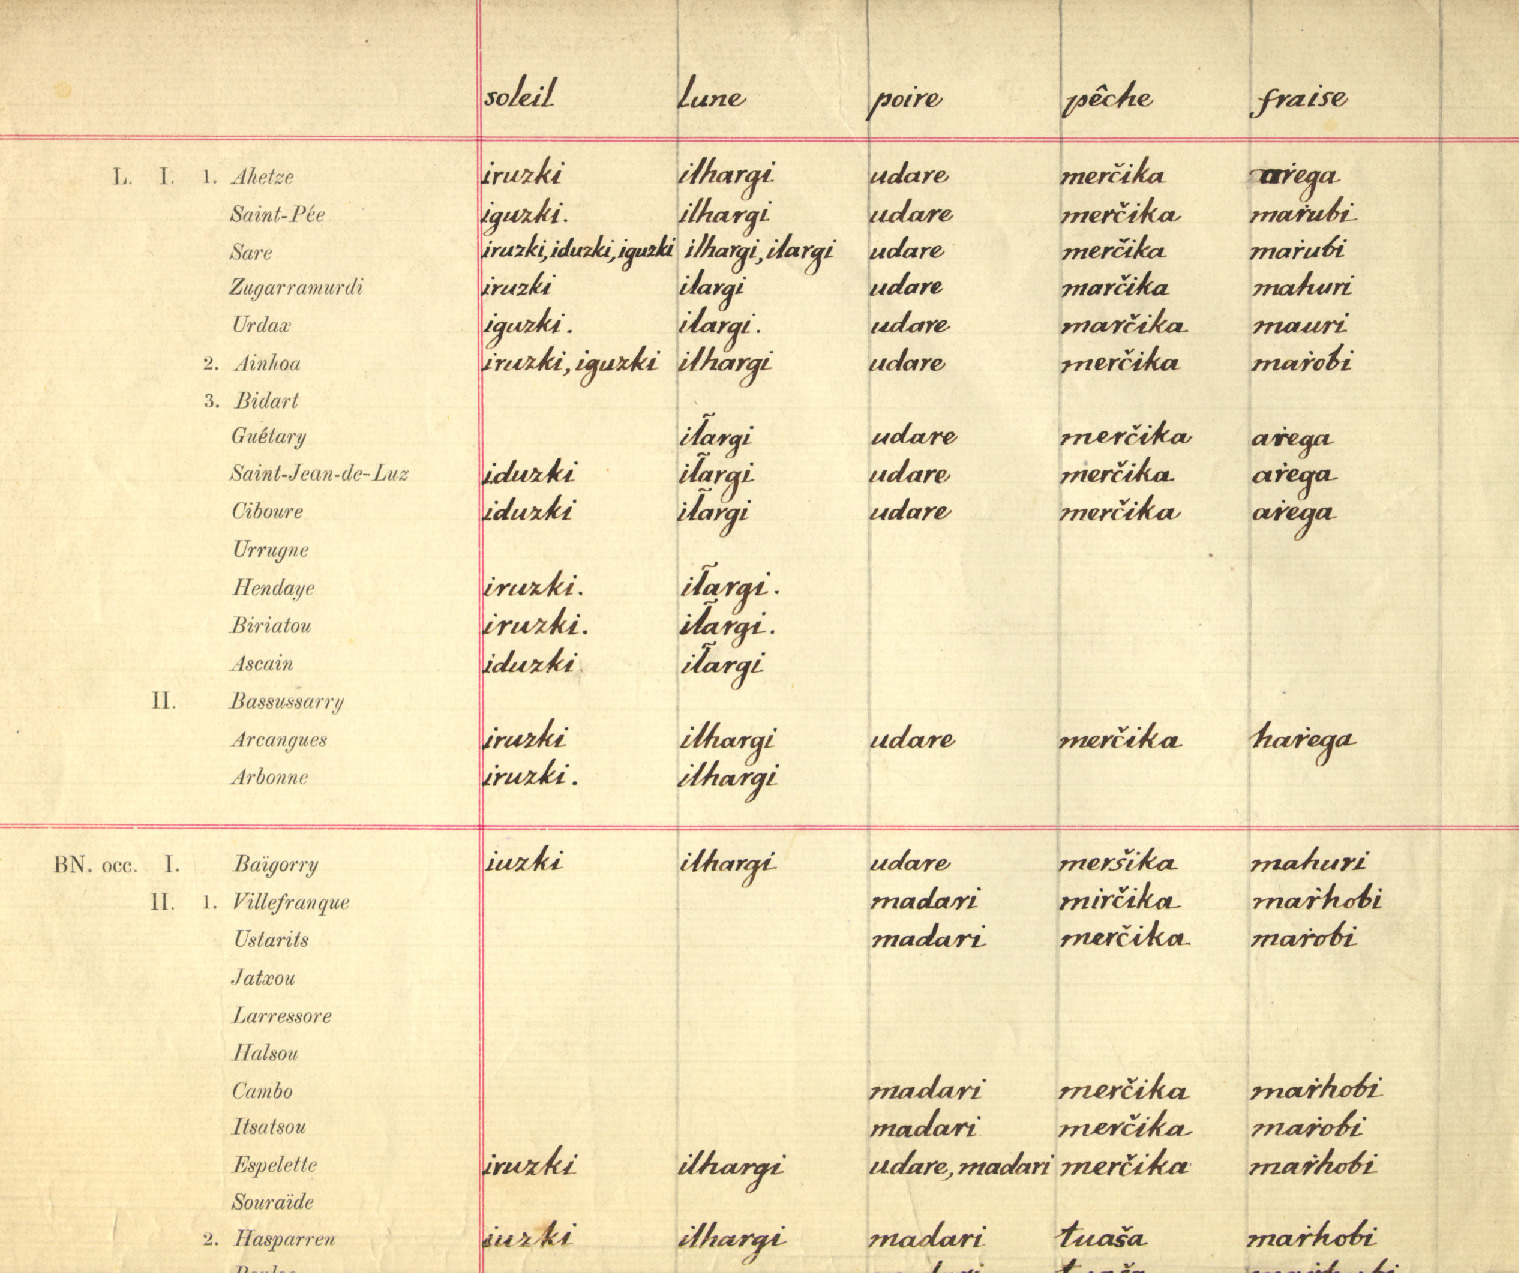 soleil lune poire pêche fraise
L. I. 1. Ahetze iruzki ilhargi udare merčika aṙega
Saint-Pée iguzki. ilhargi udare merčika maṙubi
Sare iruzki, iduzki, iguzki ilhargi, ilargi udare merčika maṙubi
Zugarramurdi iruzki ilargi udare marčika mahuri
Urdax iguzki. ilargi. udare marčika mauri
2. Ainhoa iruzki, iguzki ilhargi udare merčika maṙobi
3. Bidart
Guétary il̃argi udare merčika aṙega
Saint-Jean-de-Luz iduzki il̃argi udare merčika aṙega
Ciboure iduzki il̃argi udare merčika aṙega
Urrugne
Hendaye iruzki. il̃argi.
Biriatou iruzki. il̃argi.
Ascain iduzki il̃argi
II. Bassussarry
Arcangues iruzki ilhargi udare merčika haṙega
Arbonne iruzki. ilhargi
BN. occ. I. Baïgorry iuzki ilhargi udare meršika mahuri
II. 1. Villefranque madari mirčika maṙhobi
Ustarits madari merčika maṙobi
Jatxou
Larressore
Halsou
Cambo madari merčika maṙhobi
Itsatsou madari merčika maṙobi
Espelette iruzki ilhargi udare, madari merčika maṙhobi
Souraïde
2. Hasparren iuzki ilhargi madari tuaša maṙhobi